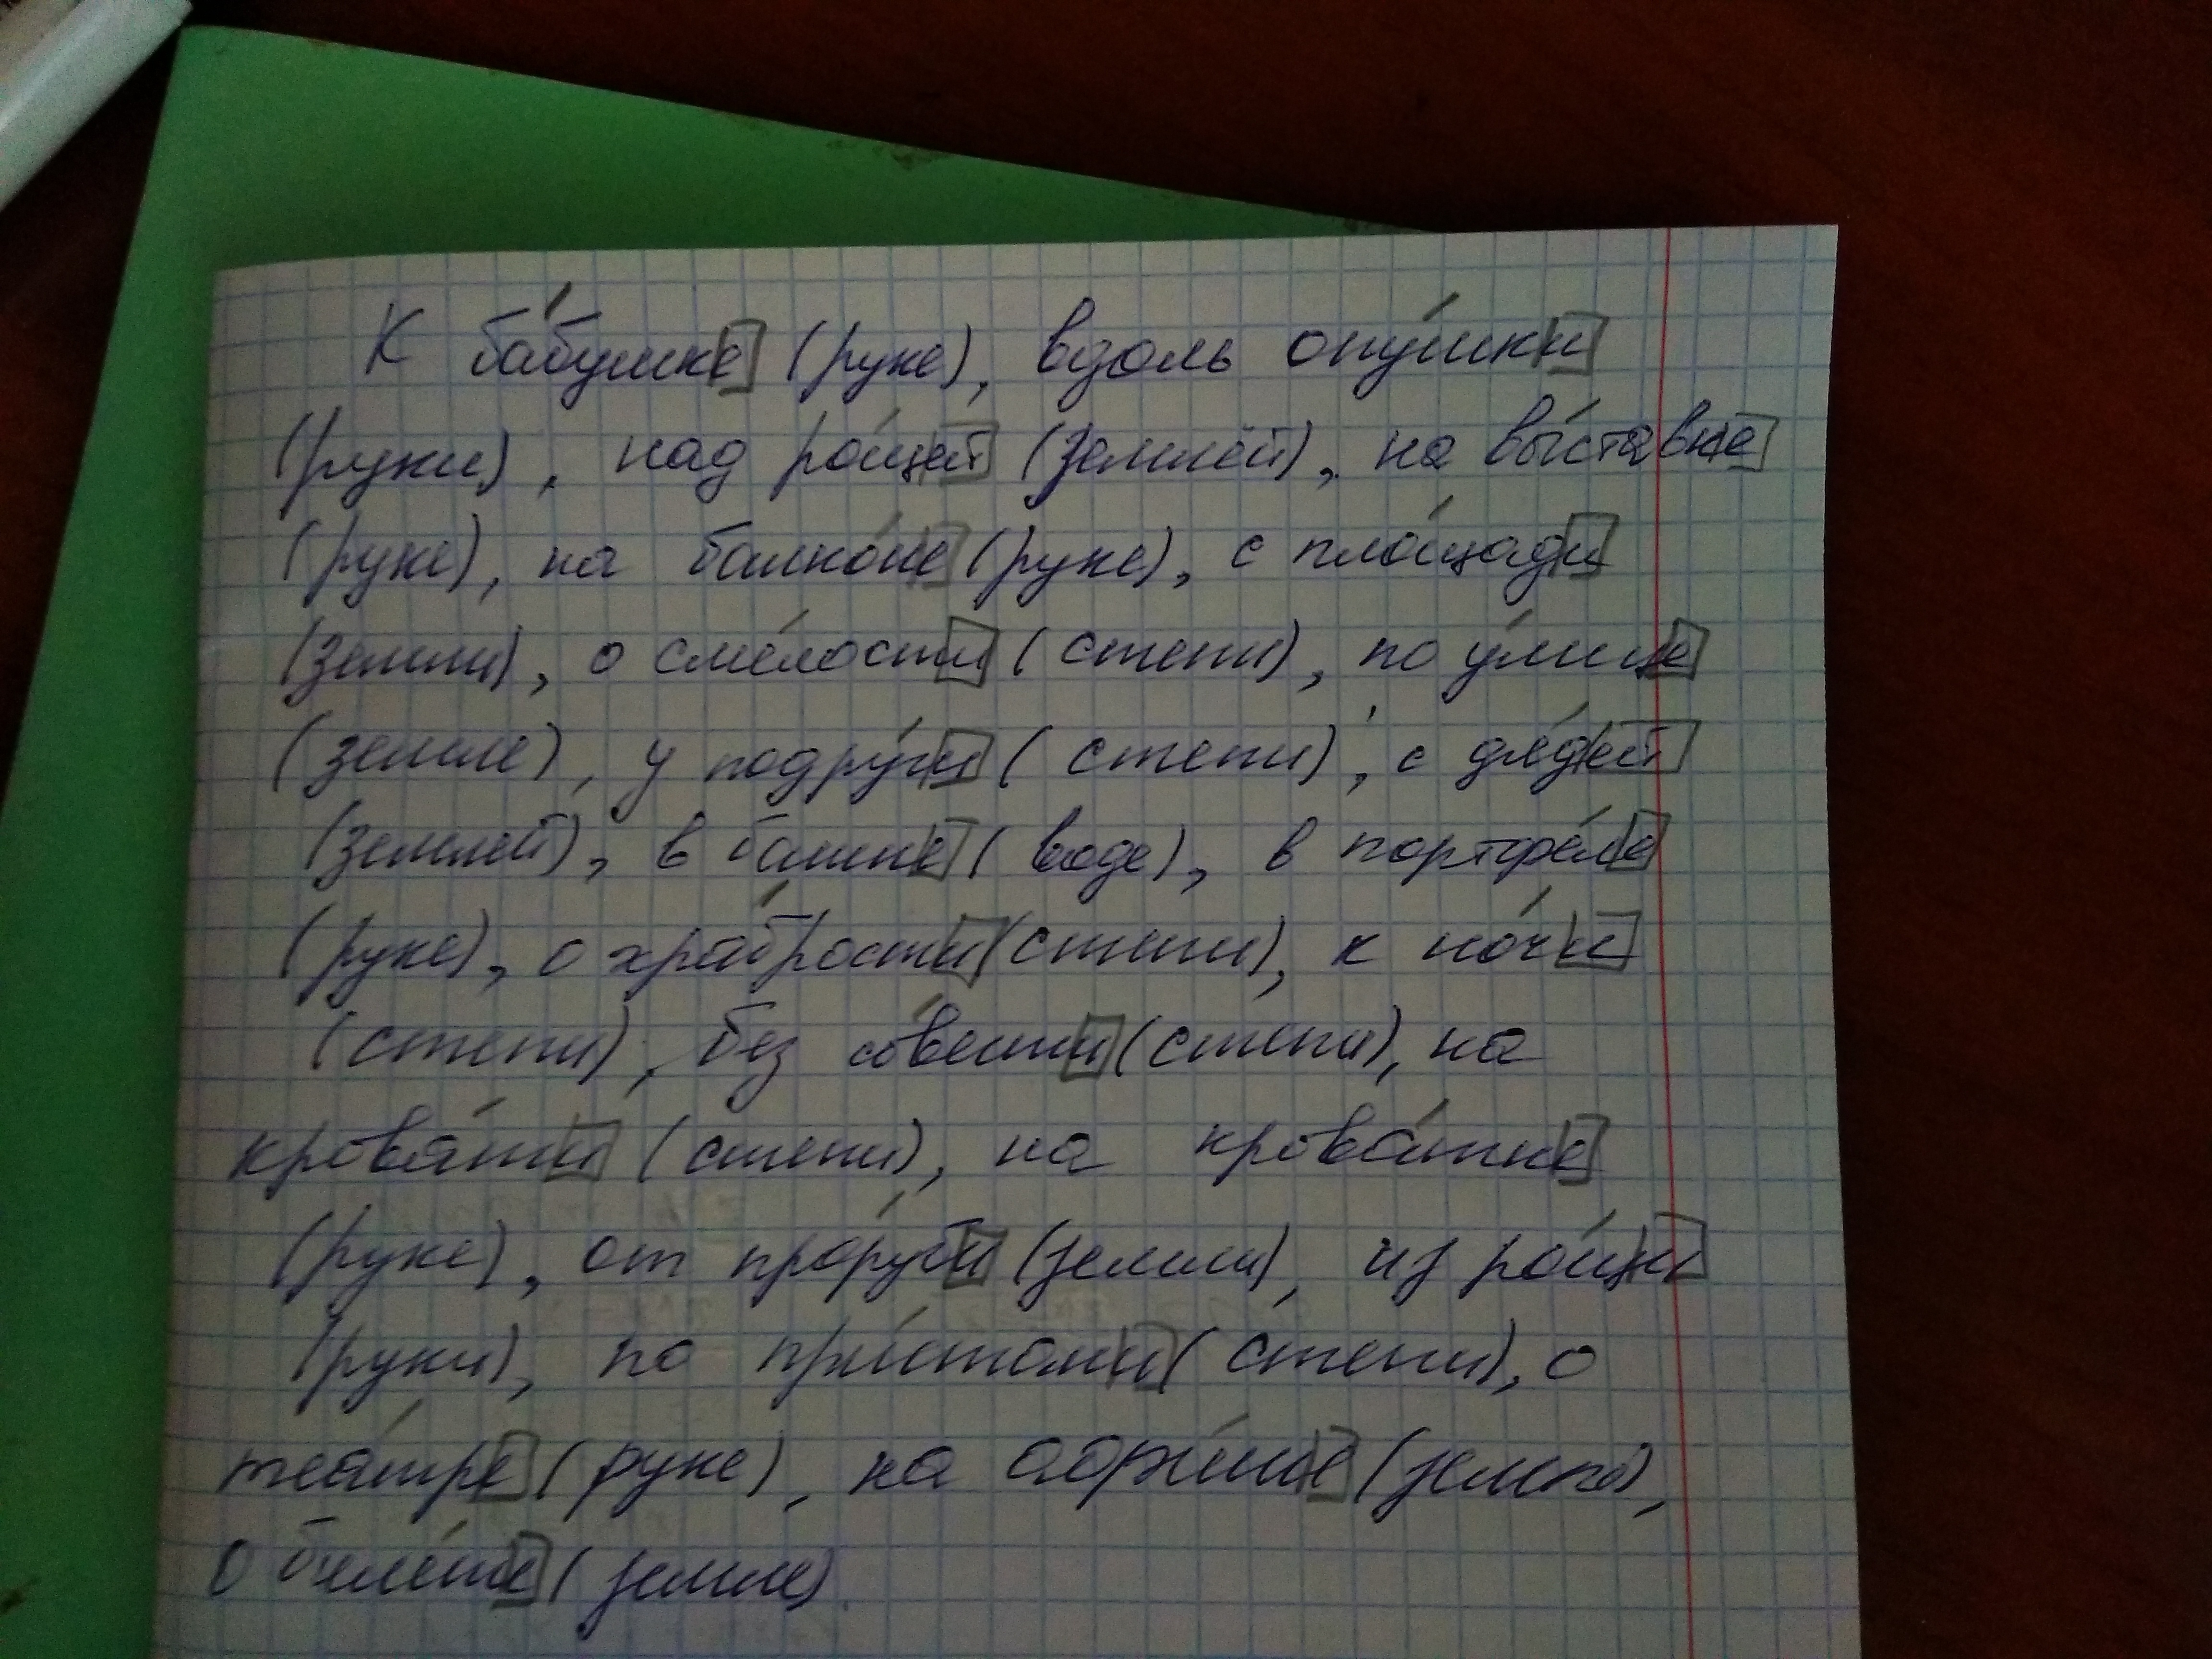 К бабушке (руке), вдоль опушки
(руки), над рощей (землёй), на выставке
(руке), на балконе (руке), с площади
(земли), о смелости (степи), по улице
(земле), у подруги (степи), с дядей
(землей), в башне (воде), в портфеле
(руке), о храбрости (степи), к ночи
(степи), без совести (степи), на
кровати (степи), на кроватке
(руке), от проруби (земли), из рощи
(руки), по пристани (степи), о
театре (руке), на (земле),
о билете (земле).